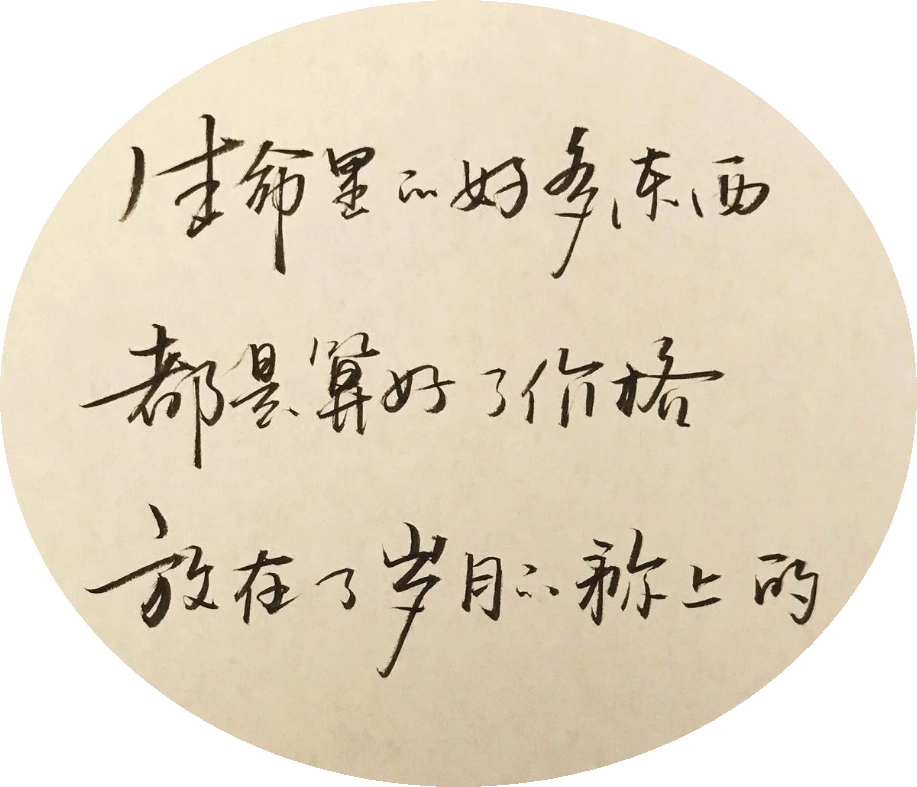 生命里的好多东西
都是算好了价格
放在了岁月的称上的